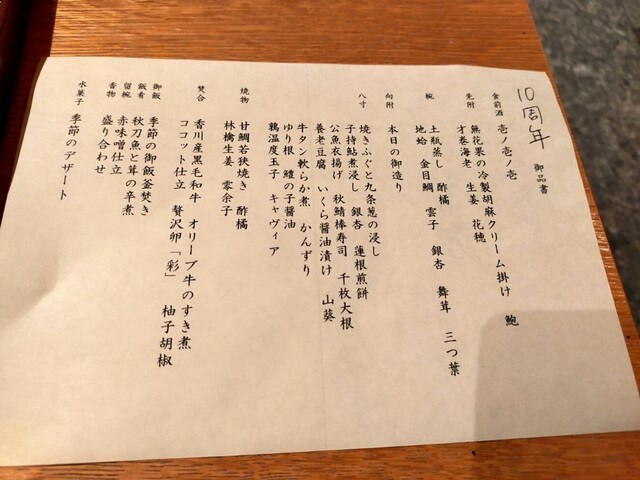 10周年
御品書
食前酒 壱ノ壱ノ壱
先附 無花果の冷製胡麻クリーム掛け 鮑
才巻海老 生姜 花穂
椀 土瓶蒸し 酢橘
地蛤 金目鯛 雲子 銀杏 舞茸 三つ葉
向附 本日の御造り
八寸 焼きふぐと九条葱の浸し
子持鮎煮浸し 銀杏 蓮根煎餅
公魚衣揚げ 秋鯖棒寿司 千枚大根
養老豆腐 いくら醤油漬け 山葵
牛タン軟らか煮 かんずり
ゆり根 鱧の子醤油
鶉温度玉子 キャヴィア
焼物 甘鯛若狭焼き 酢橘
林檎生姜 零余子
焚合 香川産黒毛和牛 オリーブ牛のすき煮
ココット仕立 贅沢卵「彩」 柚子胡椒
御飯 季節の御飯釜焚き
飯肴 秋刀魚と茸の辛煮
留椀 赤味噌仕立
香物 盛り合わせ
水菓子 季節のデザート